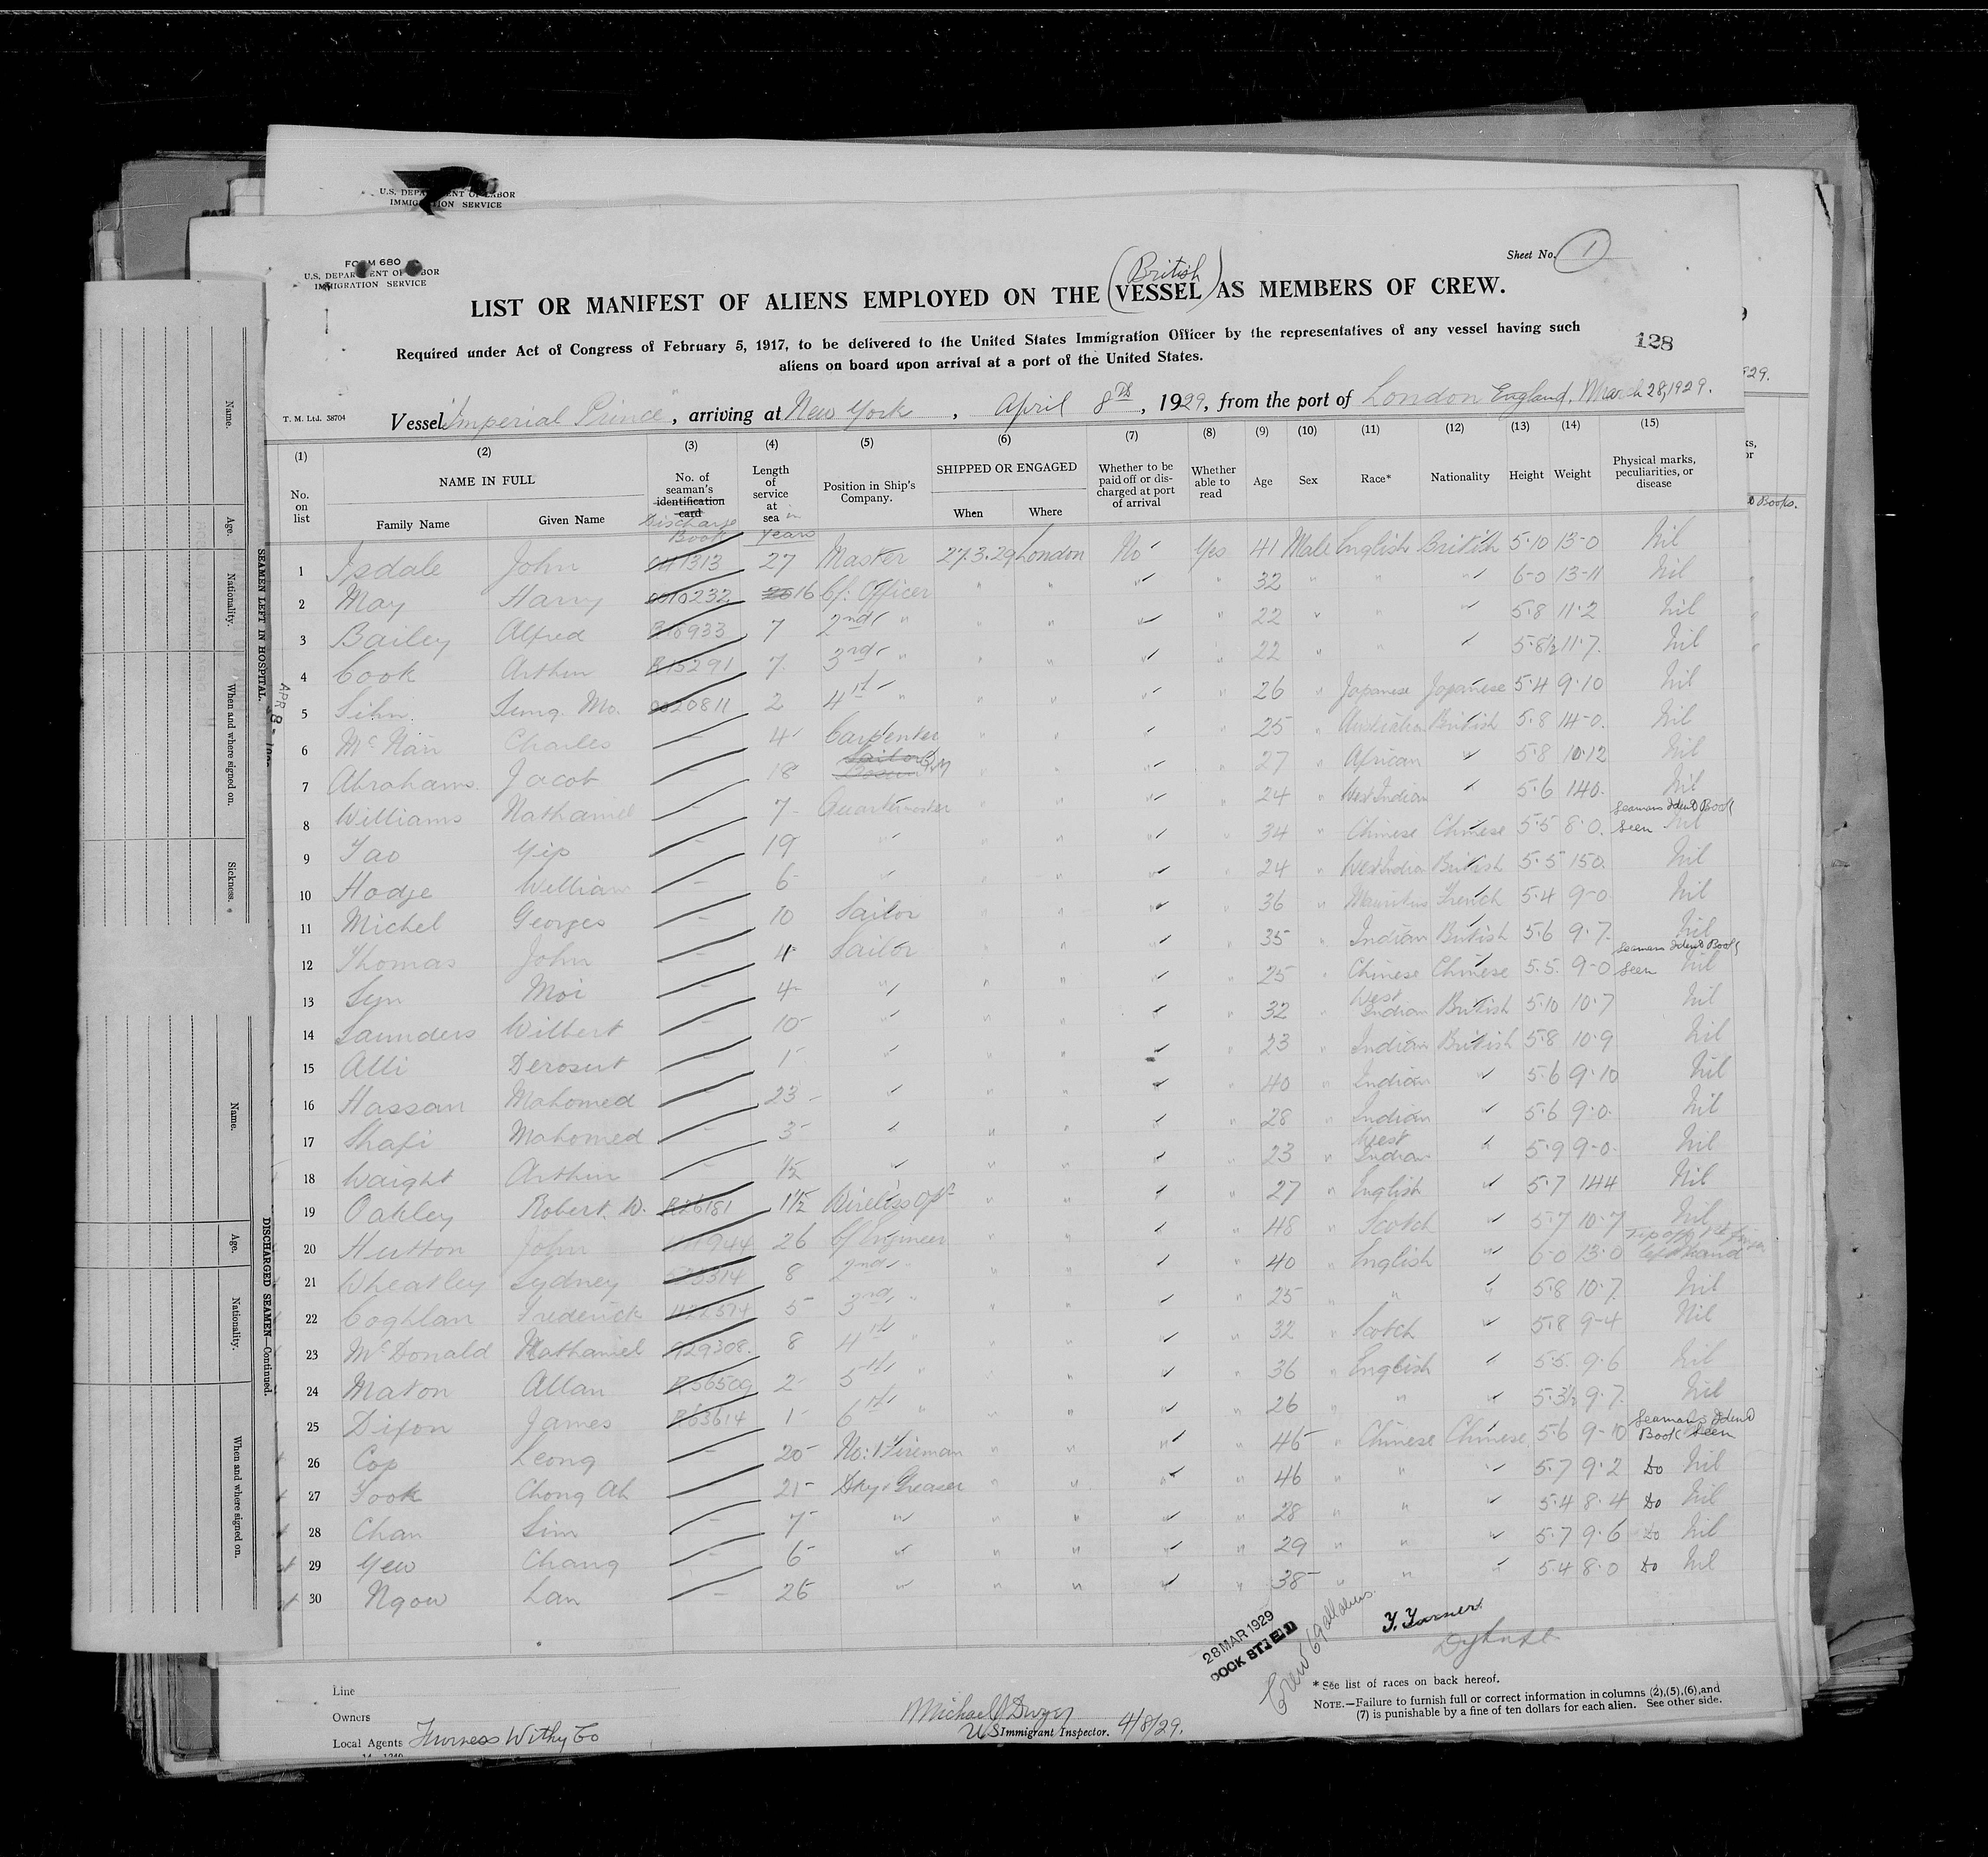 U.S. DEPARTMENT OF LABOR
IMMIGRATION SERVICE
FORM 680
U.S. DEPARTMENT OF LABOR
IMMIGRATION SERVICE
Sheet No. 1
(British)
LIST OR MANIFEST OF ALIENS EMPLOYED ON THE VESSEL AS MEMBERS OF CREW.
Required under Act of Congress of February 5, 1917, to be delivered to the United States Immigration Officer by the representatives of any vessel having such
aliens on board upon arrival at a port of the United States.
128
T. M. Ltd. 38704
Vessel "Imperial Prince", arriving at New York, April 8th, 1929, from the port of London England, March 28, 1929.
(1) (2) (3) (4) (5) (6) (7) (8) (9) (10) (11) (12) (13) (14) (15)
No. on list NAME IN FULL Family Name Given Name No. of seaman's identification card Discharge Book Length of service at sea in years Position in Ship's Company. SHIPPED OR ENGAGED When Where Whether to be paid off or discharged at port of arrival Whether able to read Age Sex Race* Nationality Height Weight Physical marks, peculiarities, or disease
1 Isdale John 27 Master 27.3.29 London No Yes 41 Male English British 5.10 13-0 Nil
2 May Harry 16 Cf: Officer " " " " 32 " " " 6-0 13-11 Nil
3 Bailey Alfred 7 2nd " " " " " 22 " " " 5.8 11.2 Nil
4 Cook Arthur R15291 7 3rd " " " " " 22 " " 5.8½ 11.7 Nil
5 Sihn Sung Mo. 2 4th " " " " " 26 " Japanese Japanese 5.4 9.10 Nil
6 McNair Charles - 4 Carpenter " " " " 25 " Australian British 5.8 14-0. Nil
7 Abrahams Jacob - 18 " " " " 27 " African " 5.8 10.12 Nil
8 Williams Nathaniel - 7 Quartermaster " " " " 24 " West Indian " 5.6 140. Nil
9 Yao Yip - 19 " " " " " 34 " Chinese Chinese 5.5 8.0. Seamans Ident Book Seen Nil
10 Hodge William - 6 " " " " " 24 " West Indian British 5.5 150 Nil
11 Michel Georges - 10 Sailor " " " " 36 " Mauritus French 5.4 9-0 Nil
12 Thomas John - 4 Sailor " " " " 35 " Indian British 5.6 9.7 Nil
13 Sun Moi - 4 " " " " " 25 " Chinese Chinese 5.5. 9-0 Seamans Ident Book Seen Nil
14 Saunders Wilbert - 10 " " " " " 32 " West Indian British 5.10 10.7 Nil
15 Alli Derosut - 1 " " " " " 23 " Indian British 5.8 10.9 Nil
16 Hassan Mahomed 23 " " " " " 40 " Indian " 5.6 9.10 Nil
17 Shafi Mahomed - 3 " " " " " 28 " Indian " 5.6 9.0. Nil
18 Waight Arthur - ½ " " " " " 23 " West Indian " 5.9 9-0. Nil
19 Oakley Robert. W. R26181 1½ Wireless Opr " " " " 27 " English " 5.7 144 Nil
20 Hutton John 26 Cf Engineer " " " " 48 " Scotch " 5.7 10.7 Nil
21 Wheatley Sydney 8 2nd " " " " " 40 " English " 6-0 13.0 Tip off 1st finger left hand
22 Coghlan Frederick 5 3rd " " " " " 25 " " " 5.8 10.7 Nil
23 McDonald Nathaniel 8 4th " " " " " 32 " Scotch " 5.8 9-4 Nil
24 Maton Allan 2 5th " " " " " 36 " English " 5.5. 9.6 Nil
25 Dixon James R63614 1 6th " " " " " 26 " " " 5.3½ 9.7. Nil
26 Cop Leong - 20 No: 1 Fireman " " " " 46 " Chinese Chinese 5.6 9-10 Seaman's Ident Book Seen
27 Fook Chong Ah - 21 Dky & Greaser " " " " 46 " " " 5.7 9.2 Do Nil
28 Chan Sim - 7 " " " " " 28 " " " 5.4 8.4 Do Nil
29 Yew Chang - 6 " " " " " 29 " " " 5.7 9.6 Do Nil
30 Ngow Lan - 26 " " " " " 38 " " " 5.4 8.0 Do Nil
28 MAR 1929
Crew 69 all aliens.
Line
Owners
Local Agents Furness Withy Co
Michael J Dwyer
US Immigrant Inspector. 4/8/29.
* See list of races on back hereof.
NOTE.—Failure to furnish full or correct information in columns (2),(5),(6),and
(7) is punishable by a fine of ten dollars for each alien. See other side.
SEAMEN LEFT IN HOSPITAL.
Name.
Age.
Nationality.
When and where signed on.
Sickness.
DISCHARGED SEAMEN—Continued.
Name.
Age.
Nationality.
When and where signed on.